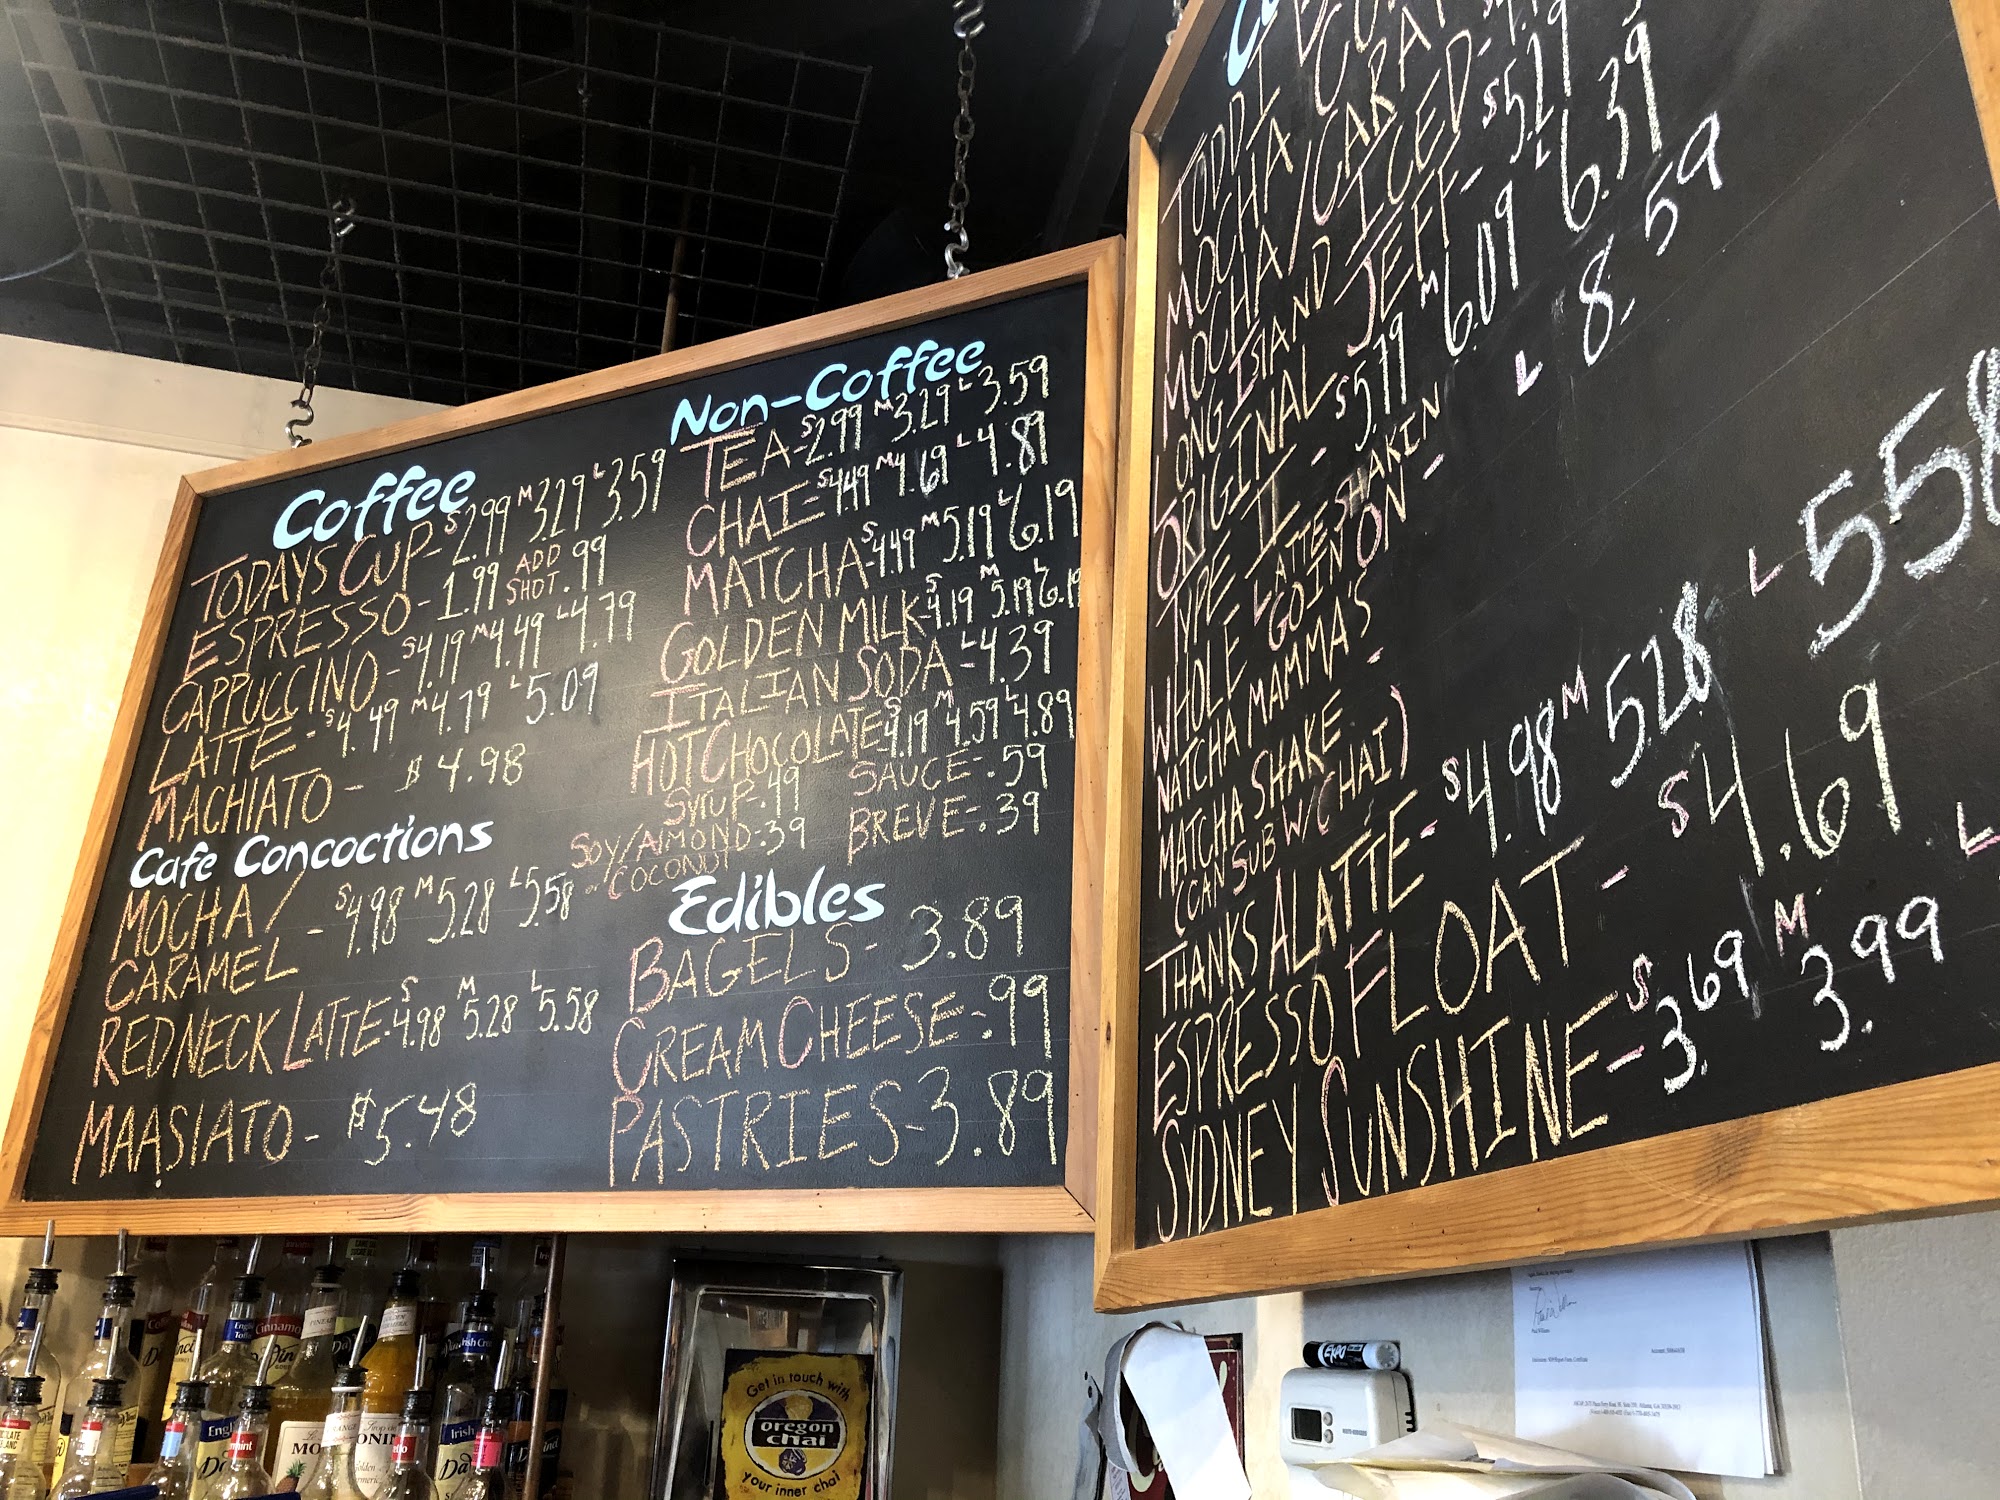 Coffee
TODAYS CUP - S 2.99 M 3.29 L 3.59
ESPRESSO - 1.99 ADD SHOT .99
CAPPUCCINO - S 4.19 M 4.49 L 4.79
LATTE - S 4.49 M 4.79 L 5.09
MACHIATO - $4.98
Cafe Concoctions
MOCHA/
CARAMEL - S 4.98 M 5.28 L 5.58
REDNECK LATTE - S 4.98 M 5.28 L 5.58
MAASIATO - $5.48
Non-Coffee
TEA - S 2.99 M 3.29 L 3.59
CHAI - S 4.49 M 4.69 L 4.89
MATCHA - S 4.49 M 5.19 L 6.19
GOLDEN MILK - S 4.19 M 5.19 L 6.19
ITALIAN SODA - L 4.39
HOT CHOCOLATE S 4.19 M 4.59 L 4.89
SYRUP - .49 SAUCE - .59
SOY/ALMOND - .39 BREVE - .39
or COCONUT
Edibles
BAGELS - 3.89
CREAM CHEESE - .99
PASTRIES - 3.89
TODDI
MOCHA
MOCHA/CARA
LONG ISLAND ICED - S 5.29
ORIGINAL JEFF - L 6.39
TYPE II - S 5.79 M 6.09
WHOLE LATTE SHAKIN
GOIN ON - L 8.59
NATCHA MAMMA'S
MATCHA SHAKE -
(CAN SUB W/CHAI)
THANKS A LATTE - S 4.98 M 5.28 L 5.58
ESPRESSO FLOAT - S 4.69
SYDNEY SUNSHINE - S 3.69 M 3.99 L
Get in touch with
oregon
chai
your inner chai
EXPO
Paul Williams